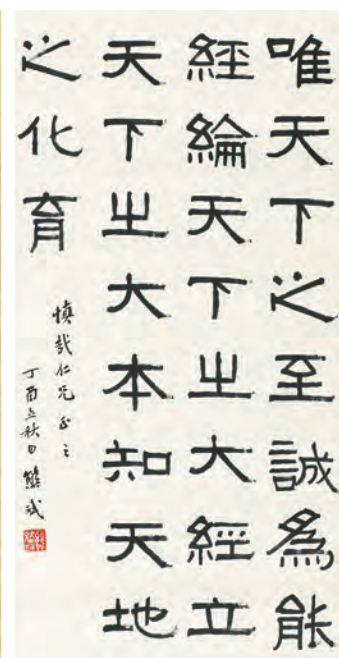 唯天下之至誠爲能
經綸天下之大經立
天下之大本知天地
之化育
慎哉仁兄正之
丁酉立秋日熊斌